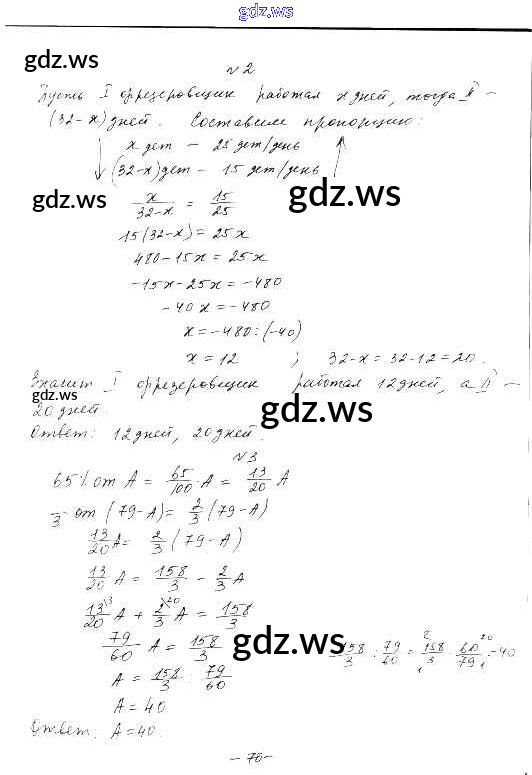 gdz.ws
gdz.ws
№2
Пусть I фрезеровщик работал x дней, тогда II –
(32-x) дней. Составим пропорцию:
x дет – 25 дет/день
(32-x) дет – 15 дет/день
gdz.ws
gdz.ws
x/(32-x) = 15/25
15(32-x) = 25x
480-15x = 25x
-15x-25x = -480
-40x = -480
x = -480:(-40)
x = 12 ; 32-x = 32-12 = 20.
Значит I фрезеровщик работал 12 дней, а II –
gdz.ws
gdz.ws
20 дней.
Ответ: 12 дней, 20 дней.
№3
65% от A = 65/100 · A = 13/20 A
/3 от (79-A) = 2/3 (79-A)
13/20 A = 2/3 (79-A)
13/20 A = 158/3 - 2/3 A
13/20 \3 A + 2/3 \20 A = 158/3
79/60 A = 158/3
158/3 : 79/60 = 158/3 · 60/79 = 40
A = 158/3 : 79/60
gdz.ws
A = 40
Ответ: A = 40.
– 70 –